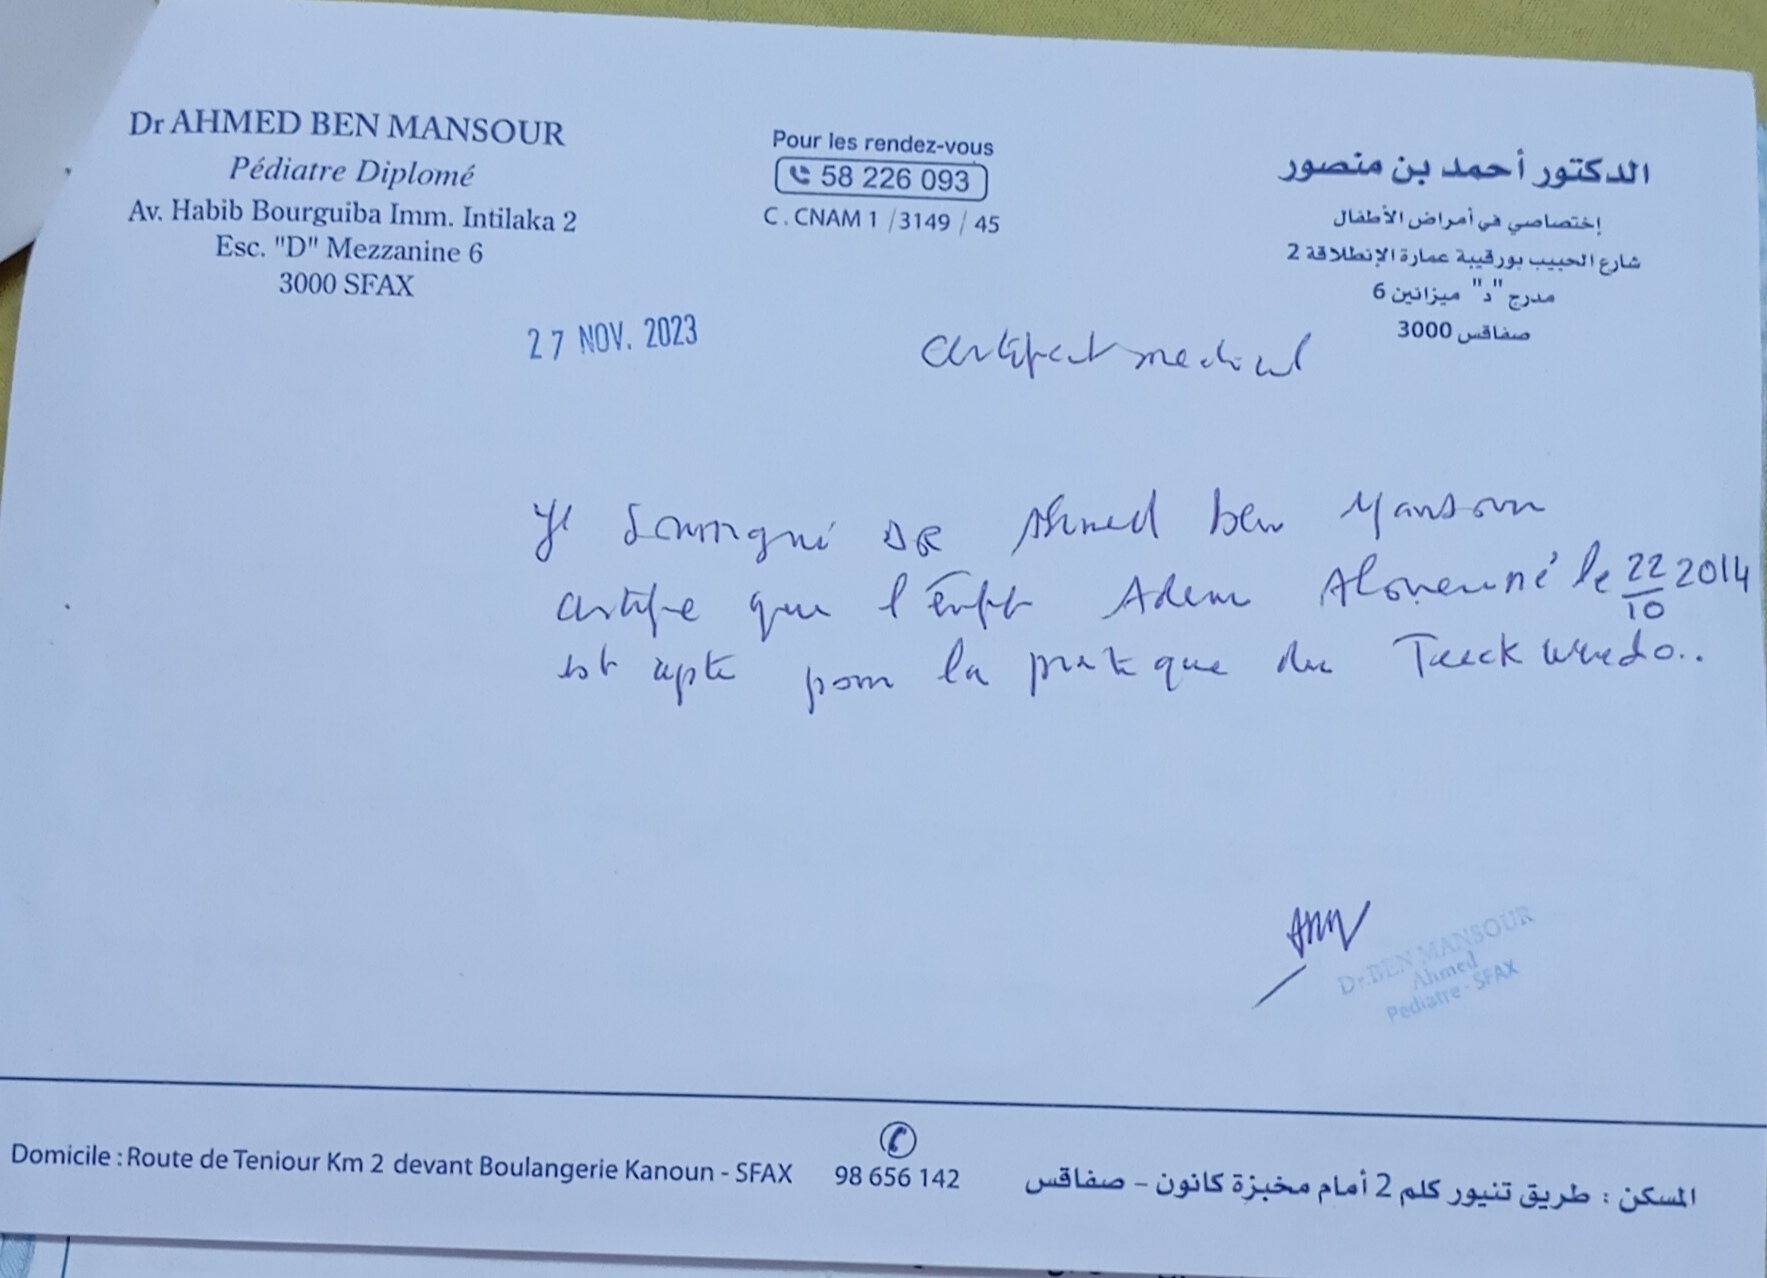 Dr AHMED BEN MANSOUR
Pédiatre Diplomé
Av. Habib Bourguiba Imm. Intilaka 2
Esc. "D" Mezzanine 6
3000 SFAX
Pour les rendez-vous
58 226 093
C. CNAM 1 / 3149 / 45
الدكتور أحمد بن منصور
إختصاصي في أمراض الأطفال
شارع الحبيب بورقيبة عمارة الإنطلاقة 2
مدرج "د" ميزانين 6
3000 صفاقس
27 NOV. 2023
certificat medical
Je soussigné DR Ahmed ben Mansour
certifie que l'enfant Adem né le 22/10 2014
est apte pour la pratique du Taeckwendo..
Dr. BEN MANSOUR
Ahmed
Pédiatre - SFAX
Domicile : Route de Teniour Km 2 devant Boulangerie Kanoun - SFAX
98 656 142
المسكن : طريق تنيور كلم 2 أمام مخبزة كانون – صفاقس